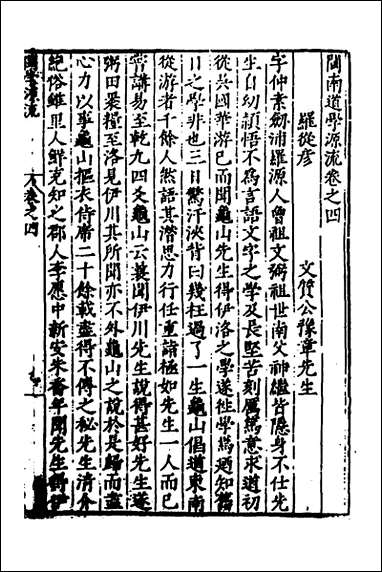 閩南道學源流卷之四
羅從彥
文質公豫章先生
字仲素劒浦羅源人曾祖文弼祖世南父神繼皆隱身不仕先
生自幼頴悟不為言語文字之學及長堅苦刻厲篤意求道初
從吳國華游已而聞龜山先生得伊洛之學遂徃學焉廼知舊
日之學非也三日驚汗浹背曰幾枉過了一生龜山倡道東南
從游者千餘人然語其潛思力行任重詣極如先生一人而已
嘗講易至乾九四爻龜山云曩聞伊川先生說得甚好先生遂
粥田裹糧至洛見伊川其所聞亦不外龜山之說於是歸而盡
心力以事龜山摳衣侍席二十餘載盡得不傳之秘先生清介
絕俗雖里人鮮克知之郡人李愿中新安朱喬年聞先生得伊
源流
卷之四